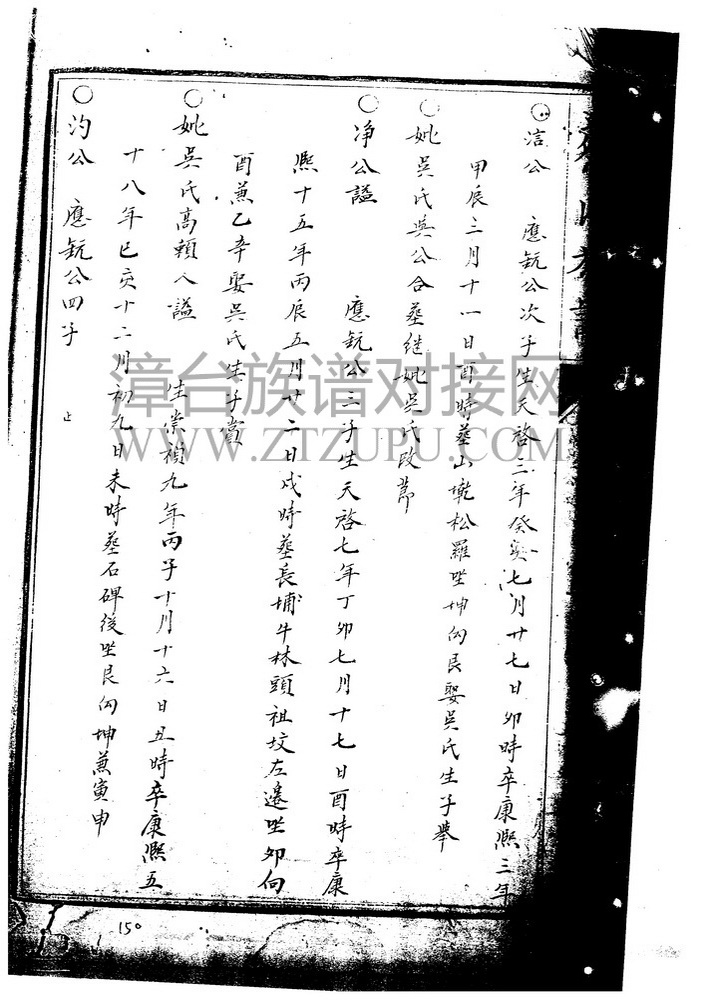 ○ 洁公 應鈨公次子生天啓三年癸亥七月廿七日卯時卒康熙三年
甲辰三月十一日酉時葬山墘松羅坐坤向艮娶吳氏生子舉
○ 妣吳氏與公合葬继妣吳氏改节
○ 净公諡 應鈨公三子生天啓七年丁卯七月十七日酉時卒康
熙十五年丙辰五月廿二日戌時葬長埔牛林頭祖坟左邉坐卯向
酉兼乙辛娶吳氏生子賞
○ 妣吳氏高賴人諡 生崇禎九年丙子十月十六日丑時卒康熙五
十八年已亥十二月初九日未時葬石碑後坐艮向坤兼寅申
○ 汋公 應鈨公四子 止
150
漳台族谱对接网
WWW.ZTZUPU.COM